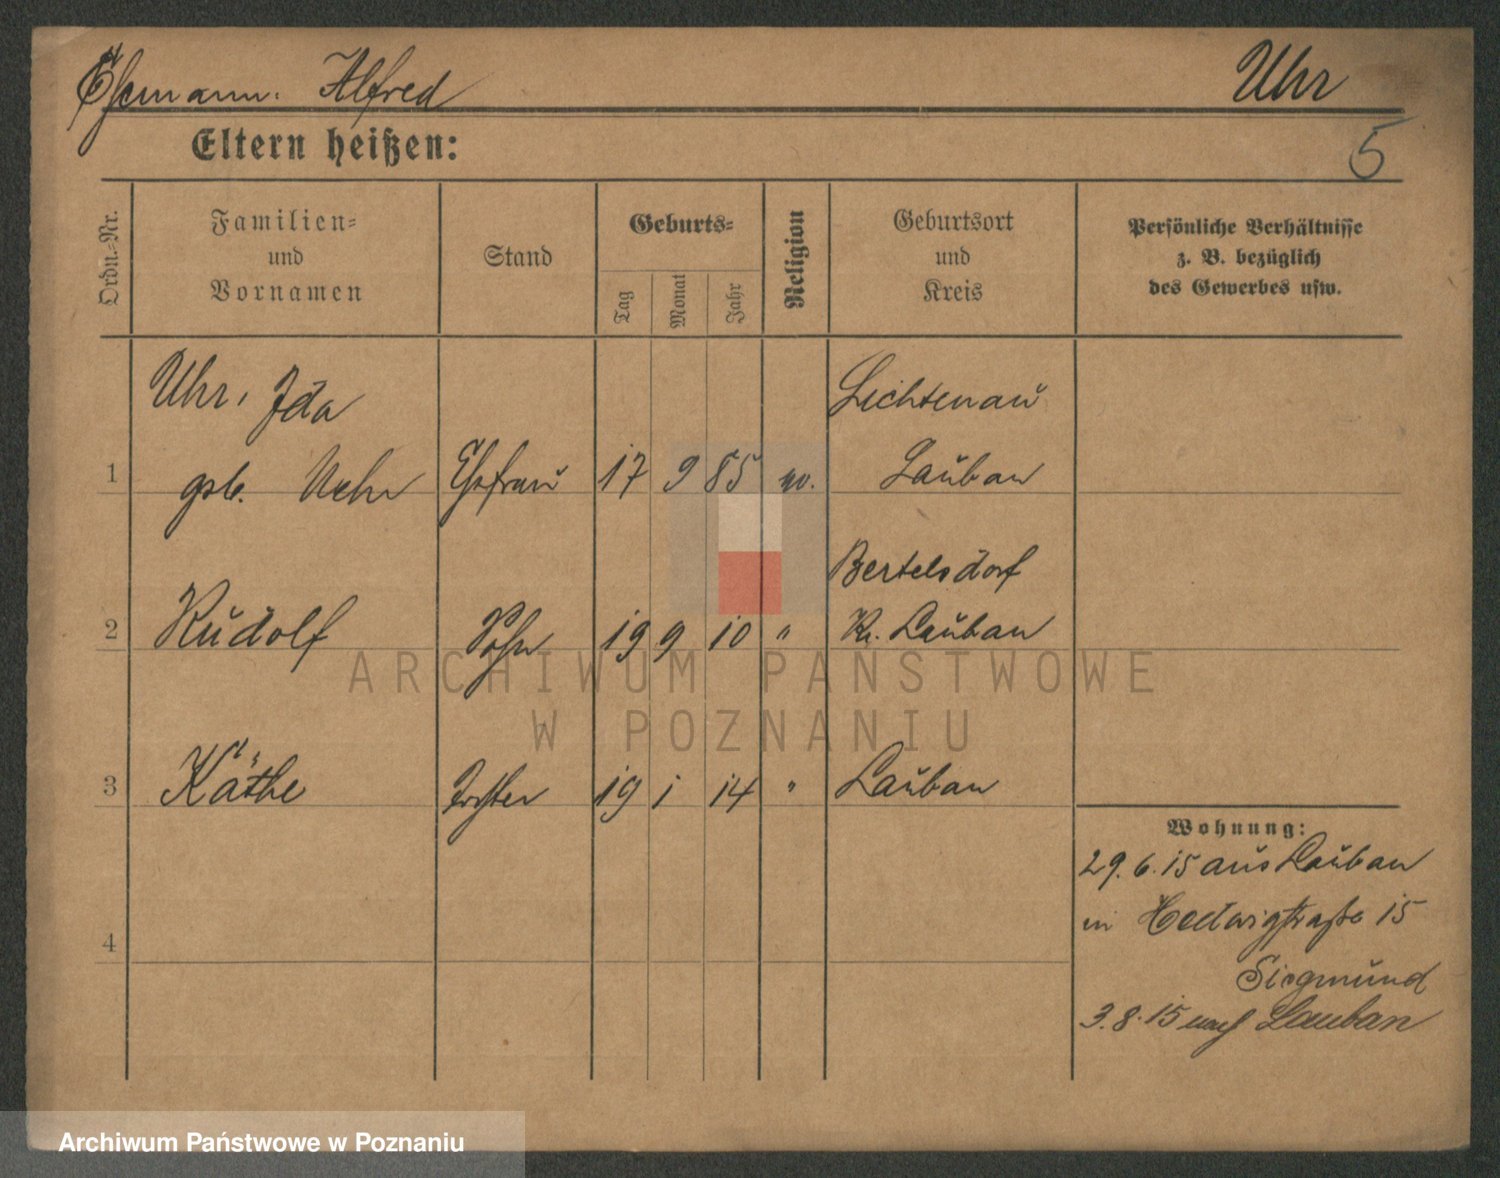 Ehemann: Alfred Uhr
Eltern heißen: 5
Ordn.-Nr.
Familien-
und
Vornamen
Stand
Geburts-
Tag
Monat
Jahr
Religion
Geburtsort
und
Kreis
Persönliche Verhältnisse
z. B. bezüglich
des Gewerbes usw.
Uhr, Ida Lichtenau
1 geb. Ehefrau 17 9 85 ev. Lauban
Bertelsdorf
2 Rudolf Sohn 19 9 10 " Kr. Lauban
ARCHIWUM PAŃSTWOWE
W POZNANIU
3 Käthe Tochter 19 1 14 " Lauban
Wohnung:
29.6.15 aus Lauban
in Hedwigstraße 15
4
Siegmund
3.8.15 nach Lauban
Archiwum Państwowe w Poznaniu